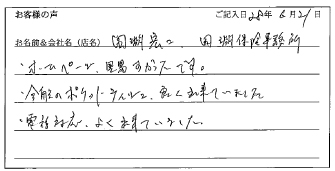 お客様の声 ご記入日 28年 6月21日
お名前&会社名(店名) 宏二、 保険事務所
・ホームページ、見易すかったです。
・今回のポケットティッシュ、良く出来ていました
・電話対応、よく出来ていました。